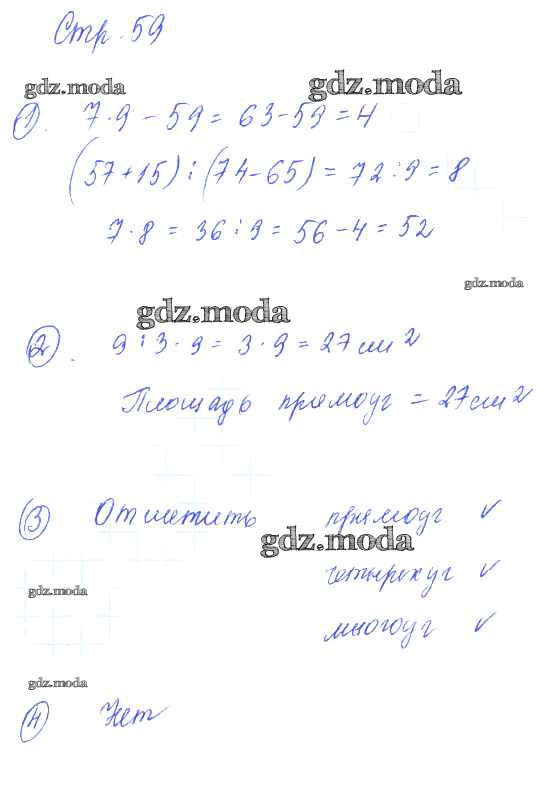 Стр. 59
gdz.moda gdz.moda
1. 7·9 - 59 = 63 - 59 = 4
(57+15) : (74-65) = 72 : 9 = 8
7·8 = 36 : 9 = 56 - 4 = 52
gdz.moda
gdz.moda
2. 9 : 3 · 9 = 3 · 9 = 27 см 2
Площадь прямоуг = 27 см 2
3 Отметить прямоуг ✓
gdz.moda
четырехуг ✓
gdz.moda
многоуг ✓
gdz.moda
4 Нет